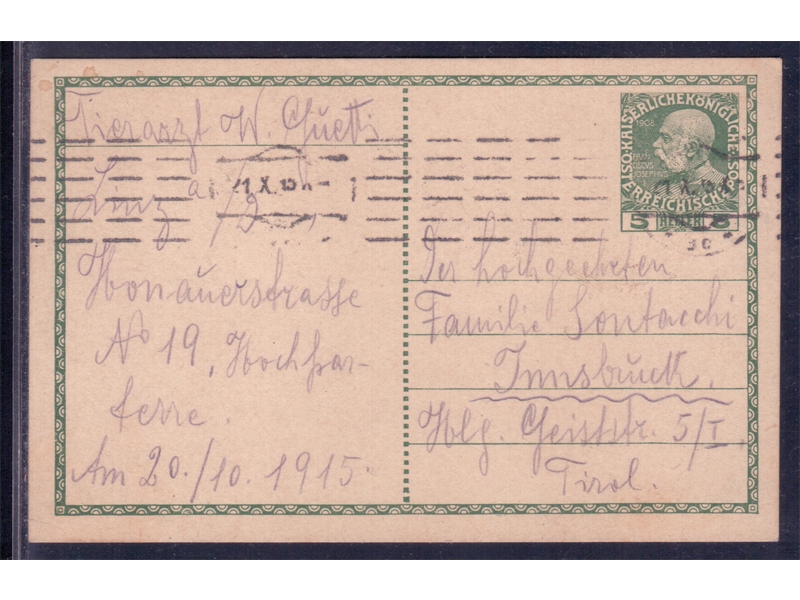 Tierarzt W. Guetti
Linz a/D,
Honauerstrasse
No 19, Hochpar-
terre.
Am 20./10. 1915.
KAISERLICHEKÖNIGLICHE
ÖSTERREICHISCHE
1908
FRAN
CISCVS
JOSEPHVS
5 HELLER 5
21.X.15
Der hochgeehrten
Familie Sontacchi
Innsbruck.
Hlg. Geiststr. 5/I
Tirol.